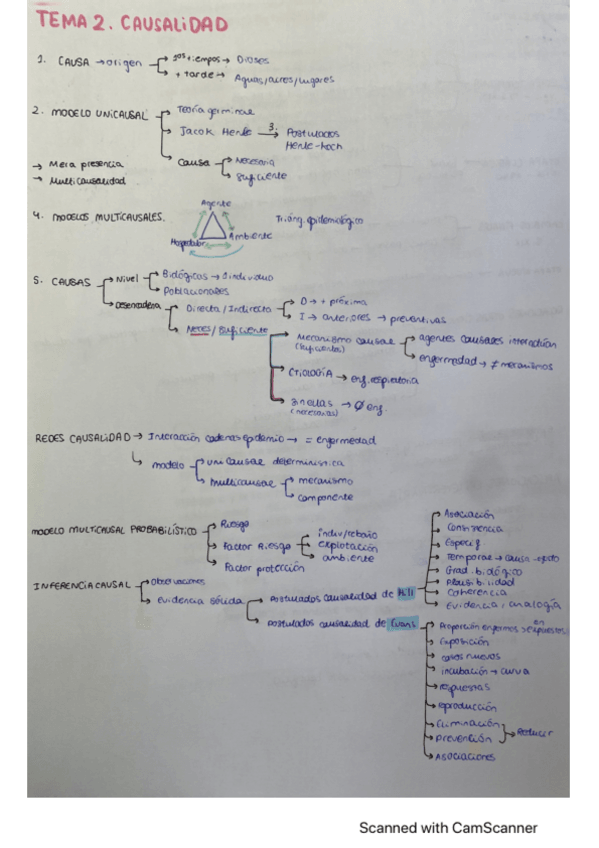 TEMA 2. CAUSALIDAD
1. CAUSA → origen
1os tiempos → Dioses
+ tarde → Aguas/aires/lugares
2. MODELO UNICAUSAL
Teoría germinal
Jacob Henle 3. → Postulados Henle-Koch
→ Mera presencia
→ Multicausalidad
Causa
Necesaria
Suficiente
4. MODELOS MULTICAUSALES.
Agente
Ambiente
Hospedador
Triáng. epidemiológico
5. CAUSAS
Nivel
Biológicas → individuo
Poblacionales
Desencadena
Directa/Indirecta
D → + próxima
I → anteriores → preventivas
Neces/Suficiente
Mecanismo causal (suficientes)
agentes causales interactúan
enfermedad → ≠ mecanismos
ETIOLOGÍA → enf. respiratoria
sin ellas → Ø enf.
(necesarias)
REDES CAUSALIDAD → Interacción cadenas epidemio → = enfermedad
modelo
unicausal determinística
multicausal
mecanismo
componente
MODELO MULTICAUSAL PROBABILÍSTICO
Riesgo
Factor Riesgo
indiv/rebaño
explotación
ambiente
Factor protección
INFERENCIA CAUSAL
Observaciones
Evidencia sólida
Postulados causalidad de Hill
Asociación
Consistencia
Especif.
Temporal → causa-efecto
Grad. biológico
Plausibilidad
Coherencia
Evidencia, analogía
Postulados causalidad de Evans
Proporción enfermos > en expuestos
Exposición
casos nuevos
incubación → curva
respuestas
reproducción
Eliminación
Prevención
Reducir
Asociaciones
Scanned with CamScanner